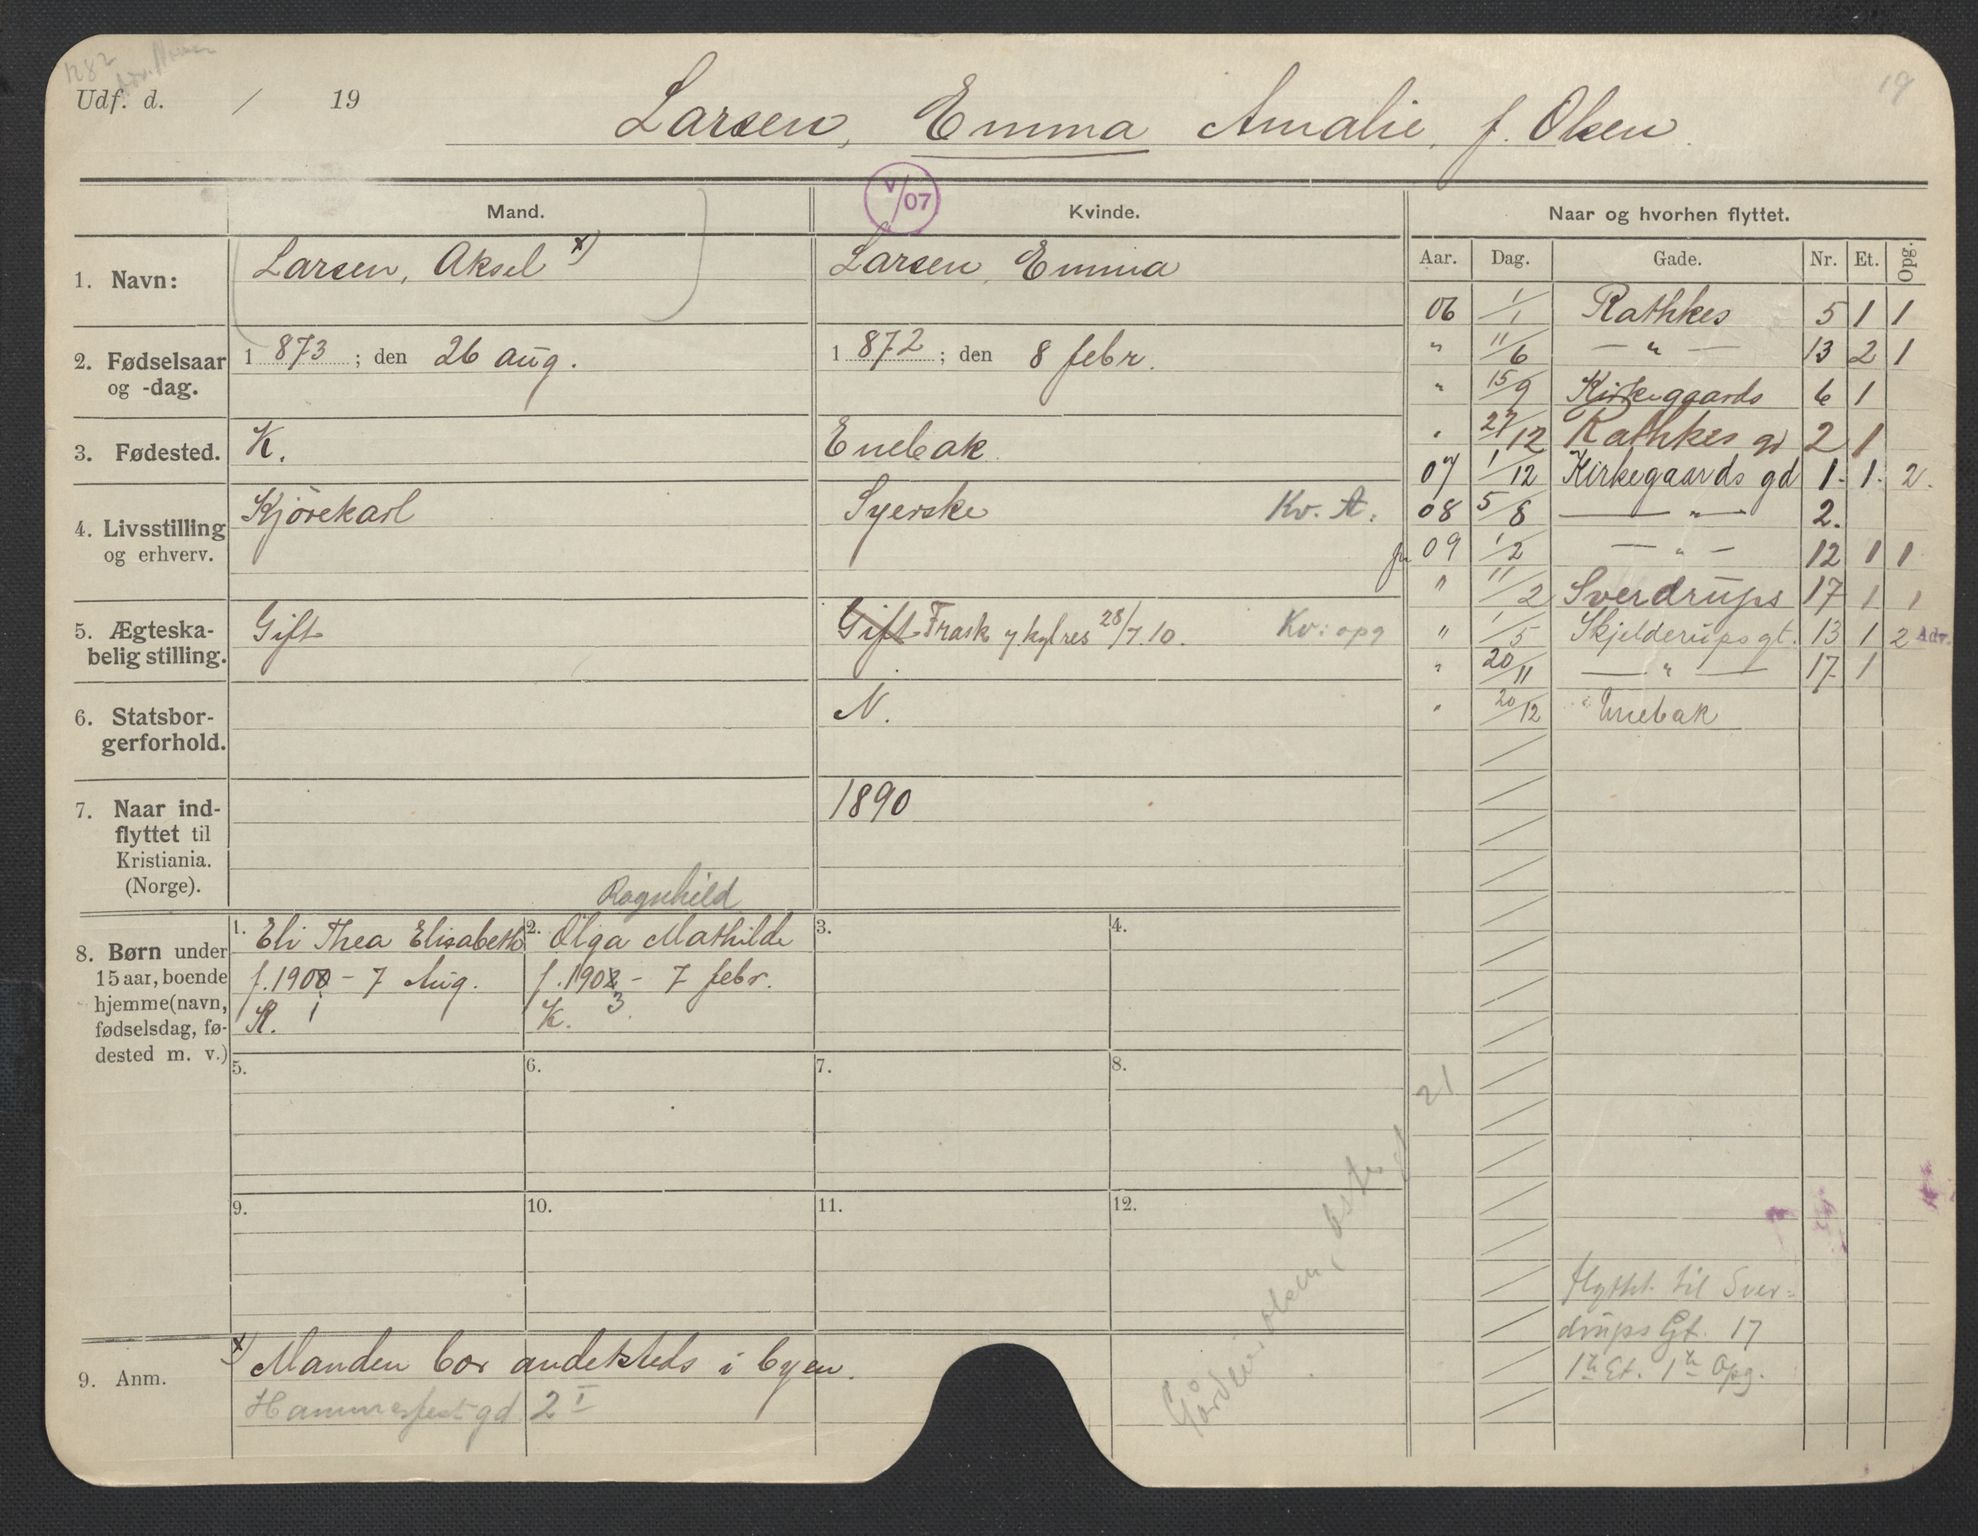 1282
Udf. d. / 19
Larsen, Emma Amalie, f. Olsen.
19
V/07
Mand.
Kvinde.
Naar og hvorhen flyttet.
Aar. Dag. Gade. Nr. Et. Opg.
1. Navn:
Larsen, Aksel x)
Larsen, Emma
2. Fødselsaar
og -dag.
1 873 ; den 26 aug.
1 872 ; den 8 febr.
3. Fødested.
K.
Enebak
4. Livsstilling
og erhverv.
Kjørekarl
Syerske Kv. A.
5. Ægteska-
belig stilling.
Gift
Gift Frask 28/7.10. Kv: opg
6. Statsbor-
gerforhold.
N.
7. Naar ind-
flyttet til
Kristiania.
(Norge).
1890
8. Børn under
15 aar, boende
hjemme (navn,
fødselsdag, fø-
dested m. v.)
1. Eli Thea Elisabeth
f. 1900 - 7 Aug.
K. 1
Ragnhild
2. Olga Mathilde
f. 1902 - 7 febr.
K. 3
3.
4.
5.
6.
7.
8.
9.
10.
11.
12.
9. Anm.
x) Manden bor andetsteds i byen.
Hammerfest gd 2 I
06 1/1 Rathkes 5 1 1
" 11/6 — " — 13 2 1
" 15/9 Kirkegaards 6 1
" 27/12 Rathkes gd 2 1
07 1/12 Kirkegaards gd 1. 1. 2.
08 5/8 — " — 2.
09 1/2 — " — 12 1 1
" 11/2 Sverdrups 17 1 1
" 1/5 Skjelderups gt. 13 1 2 Adv.
" 20/11 — " — 17 1
" 20/12 Enebak
21
flyttet til Sver-
drups Gt. 17
1ste Et. 1ste Opg.